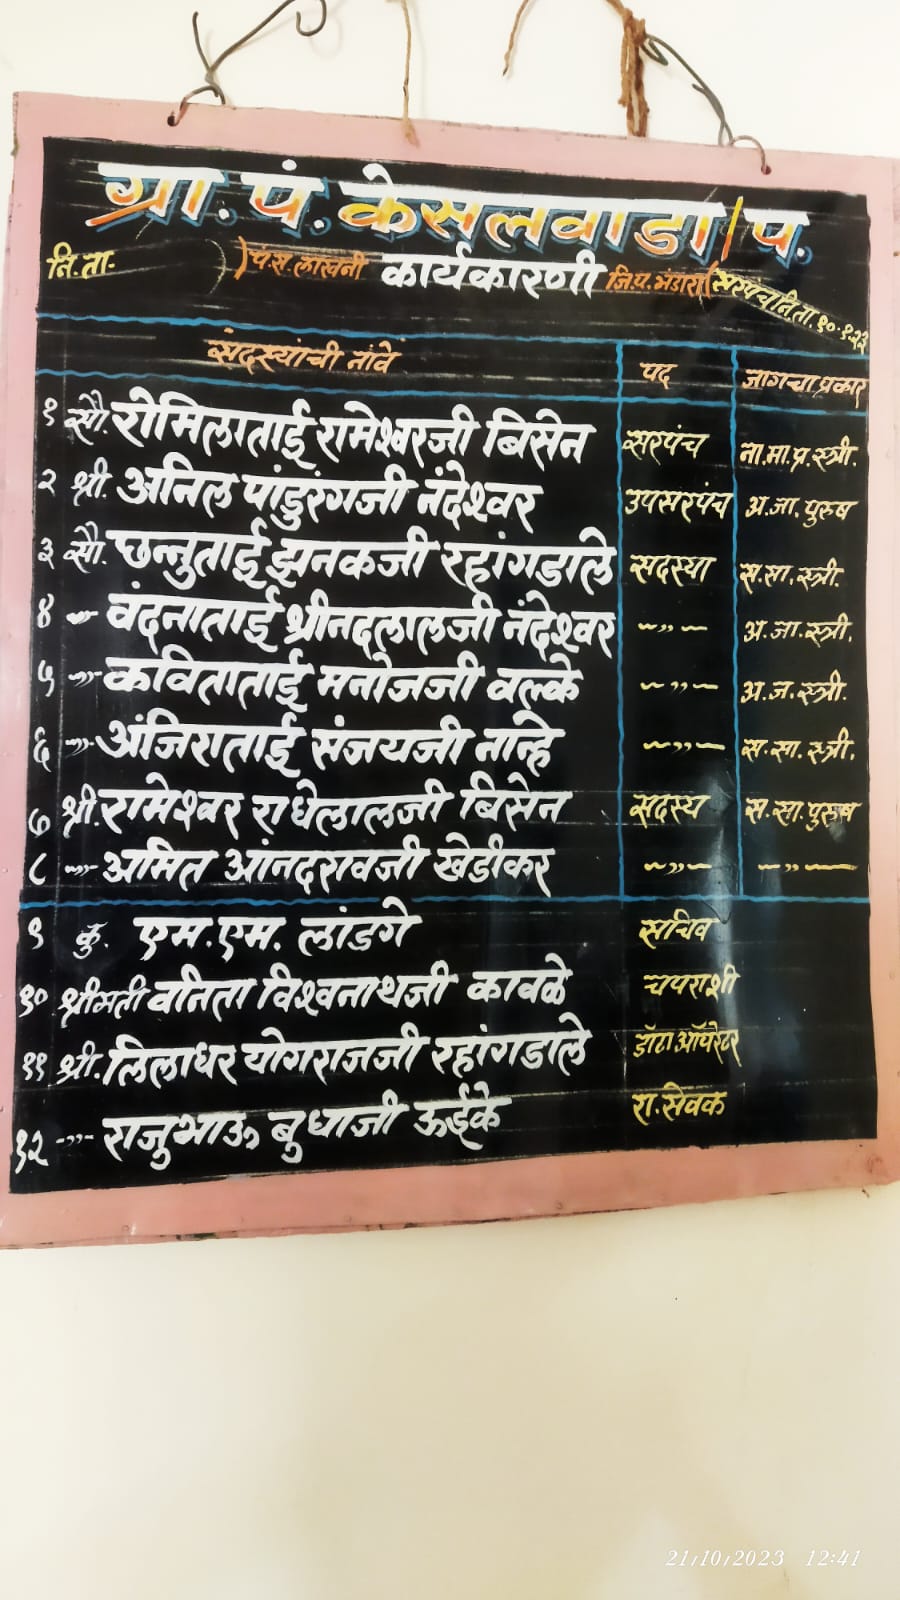 ग्रा. पं. केसलवाडा/प.
नि.ता. ) पं.स. लाखनी कार्यकारणी जि.प. भंडारा (सरपंच नि.ता. १०.१.२३
सदस्यांची नांवे पद जागेचा प्रकार
१ सौ. रोमिलाताई रामेश्वरजी बिसेन सरपंच ना.मा.प्र.स्त्री.
२ श्री. अनिल पांडुरंगजी नंदेश्वर उपसरपंच अ.जा.पुरुष
३ सौ. छन्नुताई झनकजी रहांगडाले सदस्या स.सा.स्त्री.
४ -"- वंदनाताई श्रीनदलालजी नंदेश्वर -"- अ.जा.स्त्री.
५ -"- कविताताई मनोजजी वल्के -"- अ.ज.स्त्री.
६ -"- अंजिराताई संजयजी नान्हे -"- स.सा.स्त्री.
७ श्री. रामेश्वर राधेलालजी बिसेन सदस्य स.सा.पुरुष
८ -"- अमित आंनदरावजी खेडीकर -"- -"-
९ कु. एम.एम. लांडगे सचिव
१० श्रीमती वनिता विश्वनाथजी कावळे चपराशी
११ श्री. लिलाधर योगराजजी रहांगडाले डॉटा ऑपरेटर
१२ -"- राजुभाऊ बुधाजी ऊईके रा.सेवक
21/10/2023 12:41